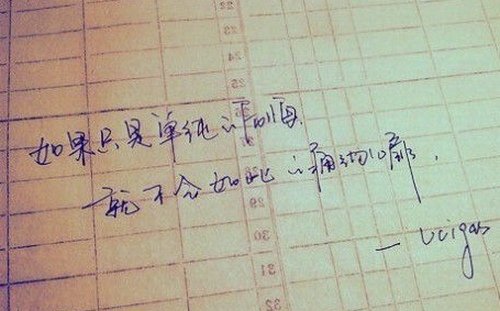 22
24
25
如果只是单纯的
就不会如此的痛彻心扉.
29
30
31
32